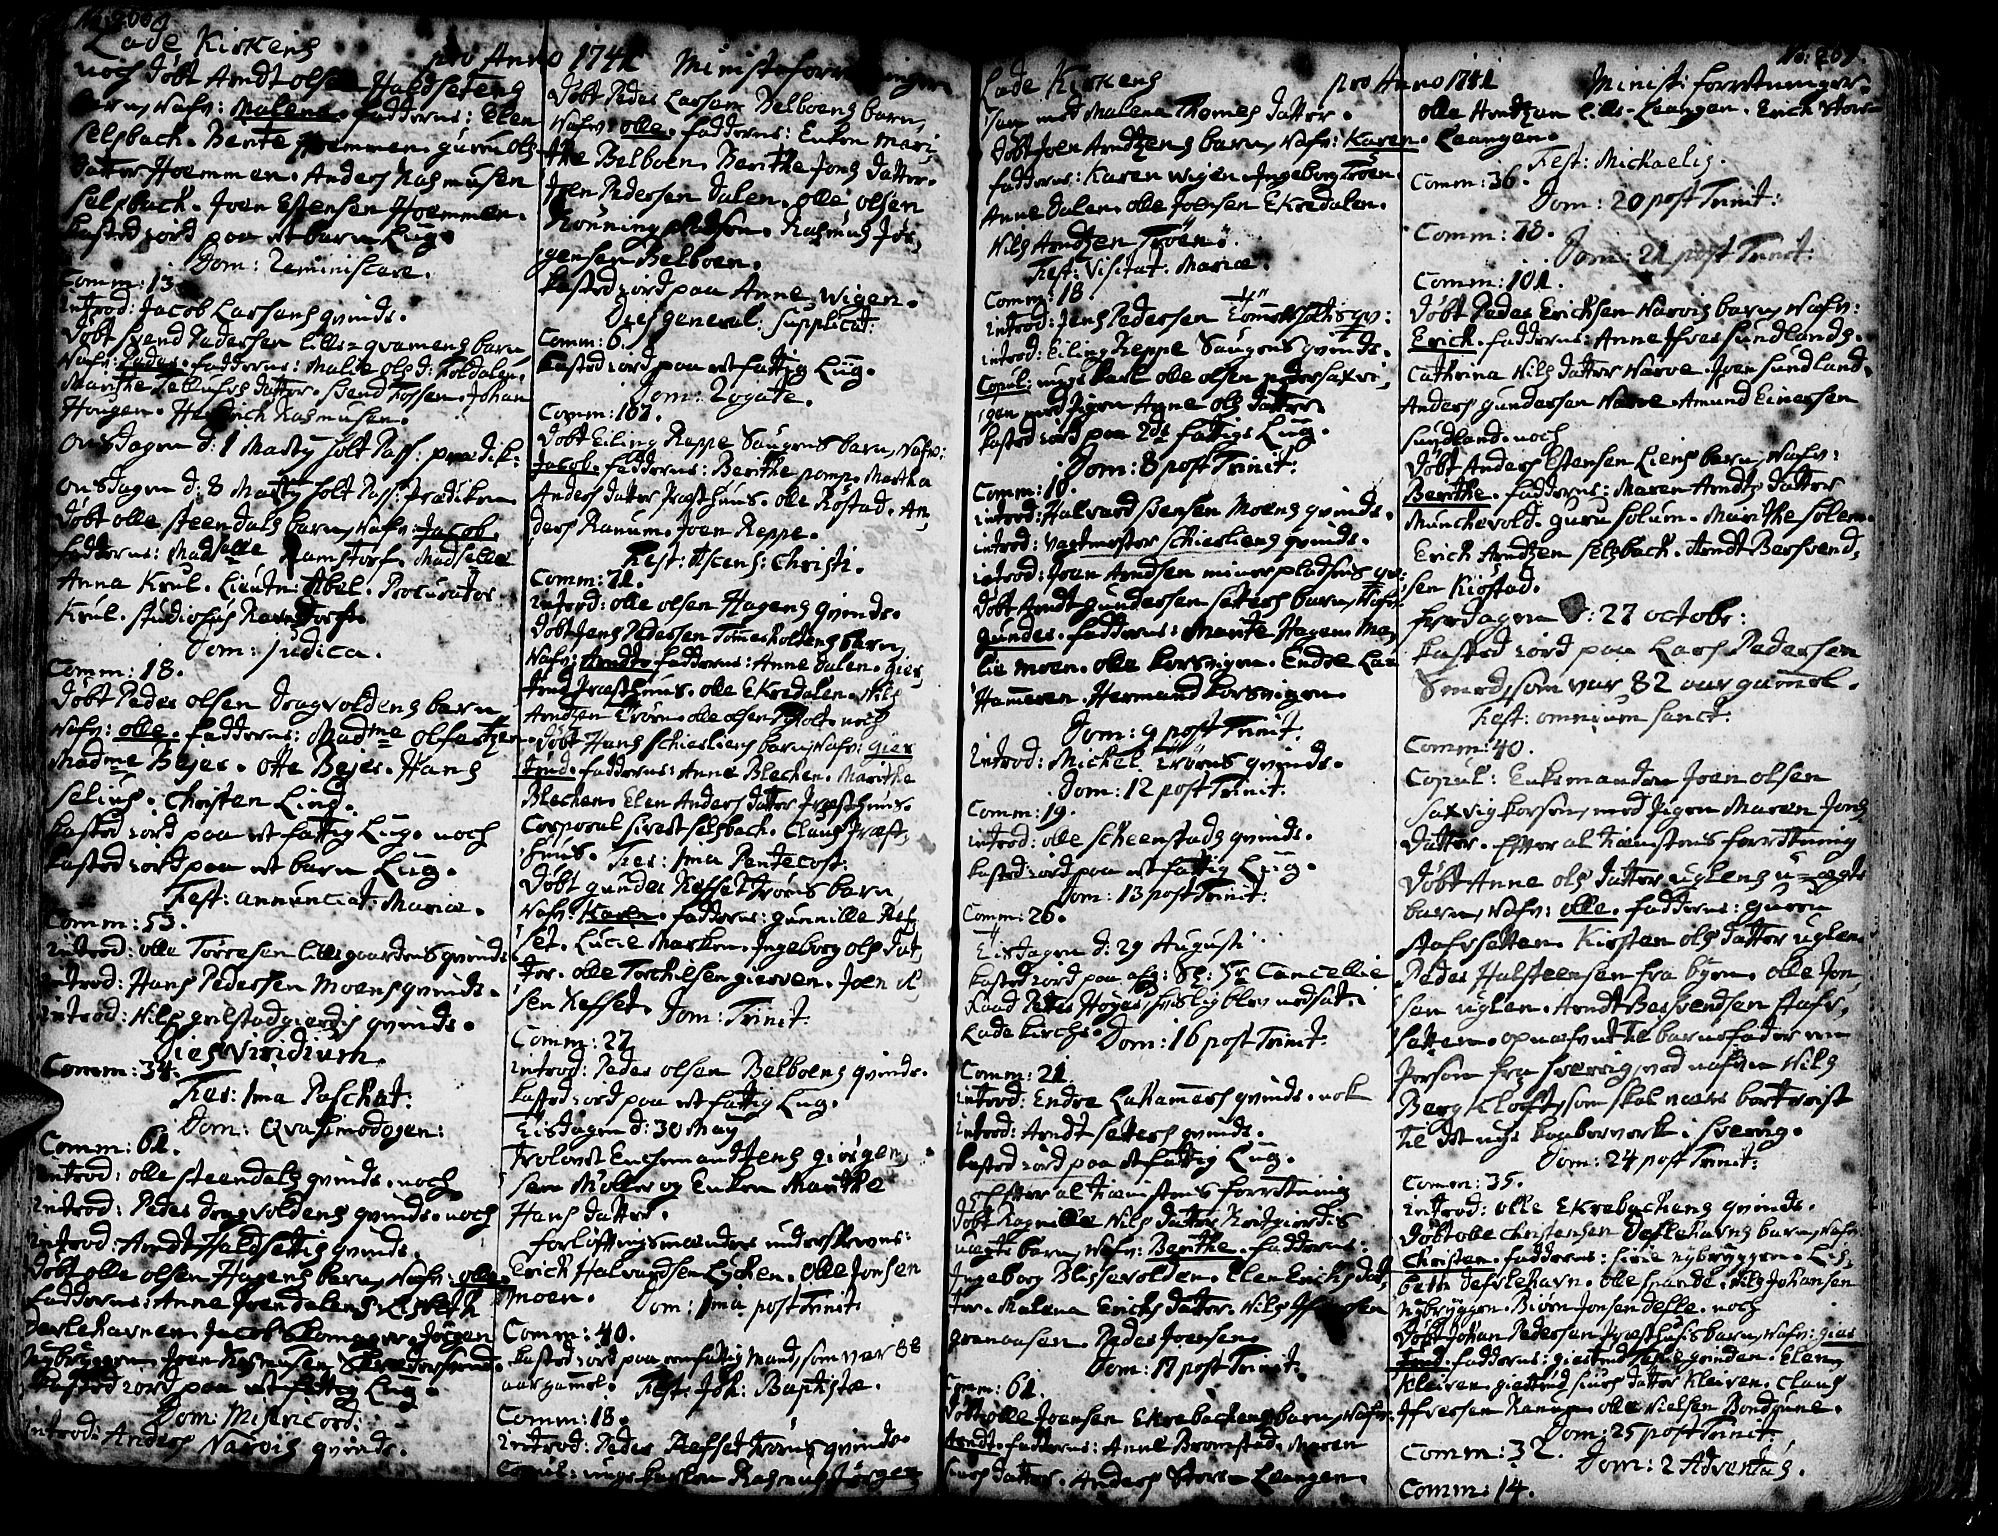 Lade Kirkens
pro Anno 1741 Ministeforretningen
noch døbt Arndt olsen Haldseteng
barn, Nafn: Malena. fadderne: Elen
selsbach. Berite Hoemmen. guru ols
datter Hoemmen. Anders Rasmusen
selsback. Joen Estensen Hoemmen.
kasted iord paa et barn Liig.
Dom: Reminiscere.
Comm: 13.
introd: Jacob Larsens qvinde.
Døbt svend Pedersen Lille-qvamens barn
Nafn: Peder. fadderne: Malite ols d: Toldalen.
Marithe Tellufs datter. svend Fossen. Johan
Hougen. Henrich Rasmusen.
Onsdagen d: 1 Marty holt Pass: prædik:
onsdagen d: 8 Marty holt Pass: prædiken
døbt olle steendals barn, Nafn: Jacob.
fadderne: Madselle Ramstorf. Madselle
Anna Krul. Lieutn: Abel. Procurator
Krul. studiosus
Dom: judica.
Comm: 18.
døbt Peder olsen dragvoldens barn
Nafn: olle. fadderne: Madme olfertzen.
Madme Bejer. Otte Bejer. Hans
Selius. Christen Lind.
kasted iord paa et fattig Liig. noch
kasted iord paa et barn Liig.
Fest: annunciat: Mariæ.
Comm: 53.
introd: olle Torresen Lillegaardens qvinde
introd: Hans Pedersen Moens qvinde.
introd: Nils gvilstadgierdis qvinde.
Dies Viridium.
Comm: 34.
Fer: 1ma Paschat:
Dom: Qvasimodogen:
Comm: 61.
introd: olle steendals qvinde. noch
introd: Peder dragvoldens qvinde. noch
introd: Arndt Haldsettis qvinde.
Døbt olle olsen Hagens barn, Nafn: olle.
fadderne: Anne Joendalen. Lisbeth
Devlehavnen. Jacob skomager. Jørgen
Nybryggen. Joen Rasmusen
kasted iord paa et fattig Liig.
Dom: Misericord:
introd: Anders Narvis qvinde.
Døbt Peder Larsen Belboens barn,
Nafn: olle. fadderne: Enken Mari,
the Belboen. Berithe Jons datter.
Joen Pedersen dalen. olle olsen
Rønning pladsen. Rasmus Jør,
gensen Belboen.
kasted iord paa Anne Wigen.
Dies general: supplicat:
Comm: 6.
kasted iord paa et fattig Liig.
Dom: Rogate.
Comm: 107.
døbt Eiling Reppe Saugens barn, Nafn:
Jacob. fadderne: Berithe pomp. Martha
Anders datter Præsthuus. olle Rostad. An,
ders Ranum. Joen Reppe.
Fest: Ascens: Christi.
Comm: 71.
introd: olle olsen Hagens qvinde.
døbt Jens Pedersen Tomesholtens barn,
Nafn: Arndt. fadderne: Anne dalen. gier,
trud Præsthuus. olle Ekredalen. Nils
Arndtzen Trøen. olle olsen Tholt. noch
døbt Hans schierliens barn, Nafn: gier
trud. fadderne: Anne Blechen. Marithe
Blechen. Elen Anders datter Præsthuus.
Corporal sivert selsbach. Claus Præst,
huus. Fer: 1ma Pentecost:
Døbt gunder Reffset trøens barn
Nafn: Karen. fadderne: gunnille Ref,
set. Lucie Marken. Ingeborg ols dat,
ter. olle Torchilsen gierven. Joen ol
sen Reffset. Dom: Trinit:
Comm: 22
introd: Peder olsen Belboens qvinde.
kasted iord paa et fattig Liig.
Tisdagen d: 30 May
Trolovet Enchemand Jens giørgen,
sen Møller og Enken Marithe
Hans datter.
forlofningsmænder underskrevne:
Erich Halvardsen Lychen. Olle Jonsen
moen. Dom: 1ma post Trinit:
Comm: 40.
kasted iord paa een fattig Mand, som var 88
aar gammel. Fest: Joh: Baptistæ.
Comm: 18.
introd: Peder Reffset trøens qvinde.
Copul: unge karlen Rasmus Jørgen
Lade Kirkens
pro Anno 1741 Minist: forretninger
sen med Malena Thomes datter.
døbt Joen Arndtzens barn, Nafn: Karen.
fadderne: Karen wigen. Ingeborg Trøen.
Anne dalen. olle Joensen Ekredalen.
Nils Arndtzen Trøen.
Fest: Visitat: Mariæ.
Comm: 18
introd: Jens Pedersen Tomesholtis qv:
introd: Eiling Reppe Saugens qvinde.
Copul: unge karl olle olsen peder saxvi,
gen med Pigen Anne ols datter.
kasted iord paa 2de fattige Liig.
Dom: 8 post Trinit:
Comm: 10.
introd: Halvard Bensen Moens qvinde.
introd: Vagtmester schierliens qvinde.
introd: Joen Arndsen minerpladsens qv:
døbt Arndt gundersen setters barn, Nafn:
gunder. fadderne: Marite Hagen. Ma,
lie moen. olle korsvigen. Endre Laa
Hammeren. Hermand korsvigen.
Dom: 9 post Trinit:
introd: Michel Trøens qvinde.
Dom: 12 post Trinit:
Comm: 19.
introd: olle scheenstads qvinde.
kasted iord paa et fattig Liig.
Dom: 13 post Trinit:
Comm: 26.
Tisdagen d: 29 Augusti
kasted iord paa afg: Sl: Hr Cancellie
Raad Peter Høyer, hvis lig blev nedsat i
Lade kirche. Dom: 16 post Trinit:
Comm: 21
introd: Endre Lahammers qvinde. nok
introd: Arndt setters qvinde.
kasted iord paa et fattig Liig.
Efter al tiænistens forretning
døbt Ragnille Nils datter Rotgierdis
uægte barn, Nafn: Berithe. fadderne:
Ingeborg Blissevolden. Elen Erichs dat,
ter. Malena Erichs datter. Nils
granaasen. Peder Joensen.
Dom: 17 post Trinit:
Comm: 61.
døbt olle Joensen Ekrebachens barn, Nafn:
Arndt. fadderne: Anne Bromstad. Maren
siurs datter. Anders store Leangen.
olle Arndtzen Lille-Leangen. Erich store
Leangen.
Fest: Michaelis.
Comm: 36.
Dom: 20 post Trinit:
Comm: 78.
Dom: 21 post Trinit:
Comm: 101.
døbt Peder Ericksen Narvis barn, Nafn:
Erich. fadderne: Anne Ifvers sundlands.
Cathrina Nils datter Narve. Joen sundland.
Anders gundersen Narve. Amund Einersen
sundland. noch
døbt Anders Estensen Liens barn, Nafn:
Berithe. fadderne: Maren Arndtz datter
Munchevold. guru solum. Marithe solem.
Erich Arndtzen selsbach. Arndt Bersvend,
sen Kiøstad.
fredagen d: 27 octobr:
kasted iord paa Lars Pedersen
Smed, som var 82 aar gammel.
Fest: omnium sanct:
Comm: 40.
Copul: Enkemanden Joen olsen
saxvig korsen, med Pigen Maren Jons
datter. Efter al tiænistens forretning
døbt Anne ols datter uglens u-ægte
barn, Nafn: olle. fadderne: guru
stafsetten. Kirsten ols datter uglen.
Peder Halsteensen fra byen. olle Jon
sen uglen. Arndt Bersvendsen stafs,
setten. opnæfnt til barnefader een
Person fra Sverrig, ved nafn Nils
Berg Klofft, som skal være bortreist
til det nye kaaberverk i sverig.
Dom: 24 post Trinit:
Comm: 35.
introd: olle Ekrebachens qvinde.
døbt olle Christensen deflehavns barn, Nafn:
Christen. fadderne: Siri nybryggen. Lis,
beth deflehavn. olle spande. Nils Johansen
nybryggen. Biørn Jonsen defle. noch
døbt Johan Pedersen Præsthuus barn, Nafn: gier
trud. fadderne: giertrud Tesli qvinden. Elen
Kleiven. giertrud siurs datter Kleiven. Claus
Ifversen Ranum. olle Nielsen Bondgune.
Dom: 25 post Trinit:
Comm: 32. Dom: 2 Adventus.
Comm: 14.